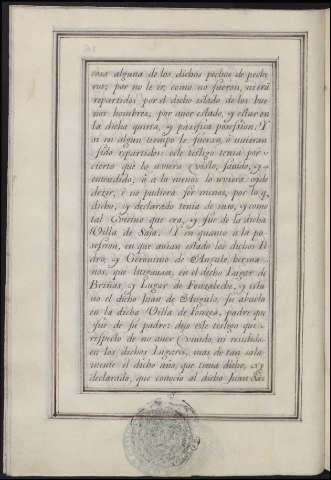 cosa alguna de los dichos pechos de peche
ros; por no le ir, como no fueron, ni era
repartidos por el dicho estado de los bue
nos hombres, por auer estado, y estar en
la dicha quieta, y pacifica posesion; Y
si en algun tiempo le fueran, ò uvieran
sido repartidos: este testigo tenia por
cierto que lo uviera visto, sauido, y
entendido; ò à lo menos lo uviera oydo
dezir, ò no pudiera ser menos, por lo q
dicho, y declarado tenia de suso, y como
tal Vezino que era, y fue de la dicha
Villa de Saja. Y en quanto a la po
sesion, en que auian estado los dichos Pe
dro, y Geronimo de Angulo, herma
nos, que litigauan, en el dicho Lugar de
Briñas, y Lugar de Fonzaleche, y estu
uo el dicho Juan de Angulo, su abuelo
en la dicha Villa de Foncea, padre que
fue de su padre: dijo este testigo que
respeto de no auer viuido, ni residido
en los dichos Lugares, mas de tan sola
mente el dicho año, que tenia dicho, y
declarado, que conocio al dicho Juan